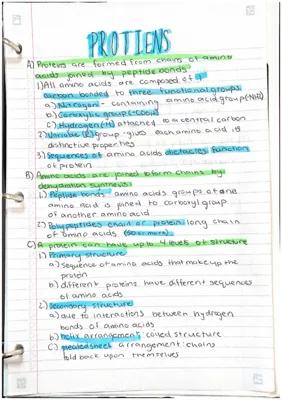 PROTIENS
A) Proteins are formed from chains of amino
acids joined by peptide bonds
1) All amino acids are composed of a
carbon bonded to three functional groups
a) Nitrogen - containing amino acid group (NH2)
b) Carboxylic group (-COOH)
c) Hydrogen (H) attached to a central carbon
2) Variable (R) group - gives each amino acid is
distinctive properties
3) Sequences of amino acids dictactes function
of protein
B) Amino acids are joined to form chains by
dehydration synthesis
1) Peptide bonds: amino acids groups of one
amino acid is joined to carboxyl group
of another amino acid
2) Polypeptides chain or protein: long chain
of amino acids (50 or more)
C) A protein can have up to 4 levels of structure
1) Primary structure
a) sequence of amino acids that make up the
protein
b) different proteins have different sequences
of amino acids
2) Secondary structure
a) due to interactions between hydrogen
bonds of amino acids
b) helix arrangement: coiled structure
c) pleated sheet arrangement: chains
fold back upon themselves